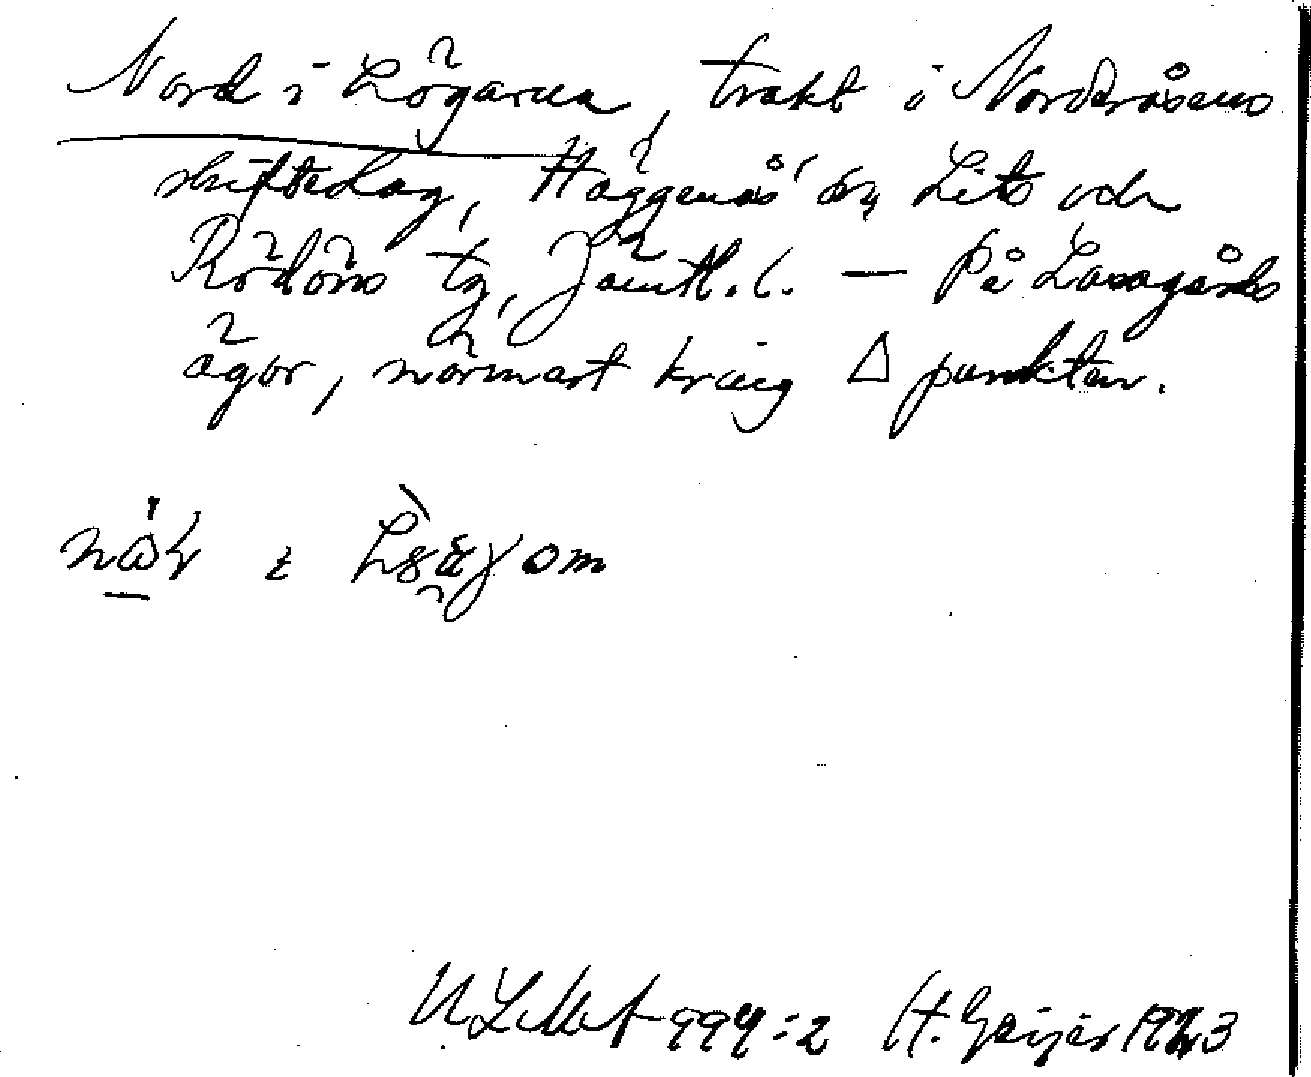 Nord i Lögarna, trakt i Norderåsens
skifteslag, Häggenås' sn, Lits och
Rödöns tg, Jämtl. l. — På Lasagårds
ägor, närmast kring Δ punkten.
ULMA 994:2 H. Geijer 1923